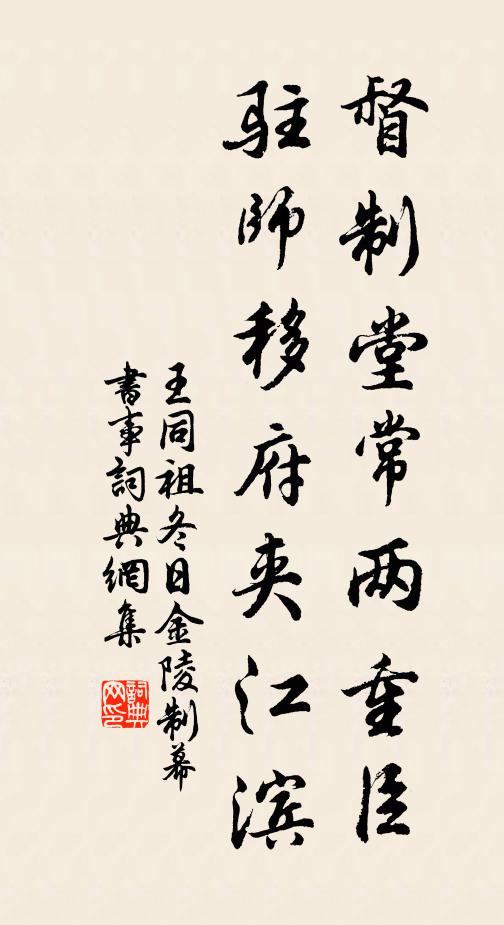 督制堂常两重臣
驻師移府夹江滨
王同祖冬日金陵制幕
書事詞典網集
詞典网印